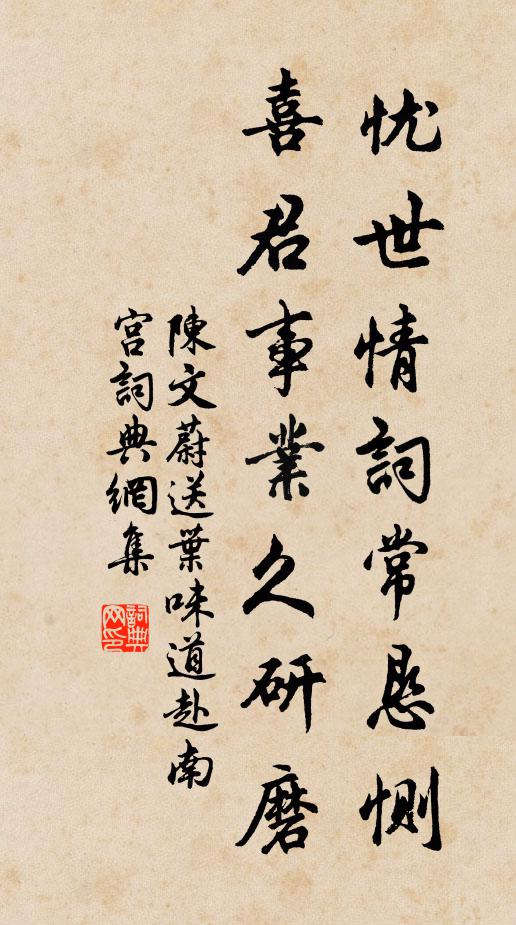 忧世情詞常恳惻
喜君事業久研磨
陳文蔚送葉味道赴南
宫詞典網集
詞典网印